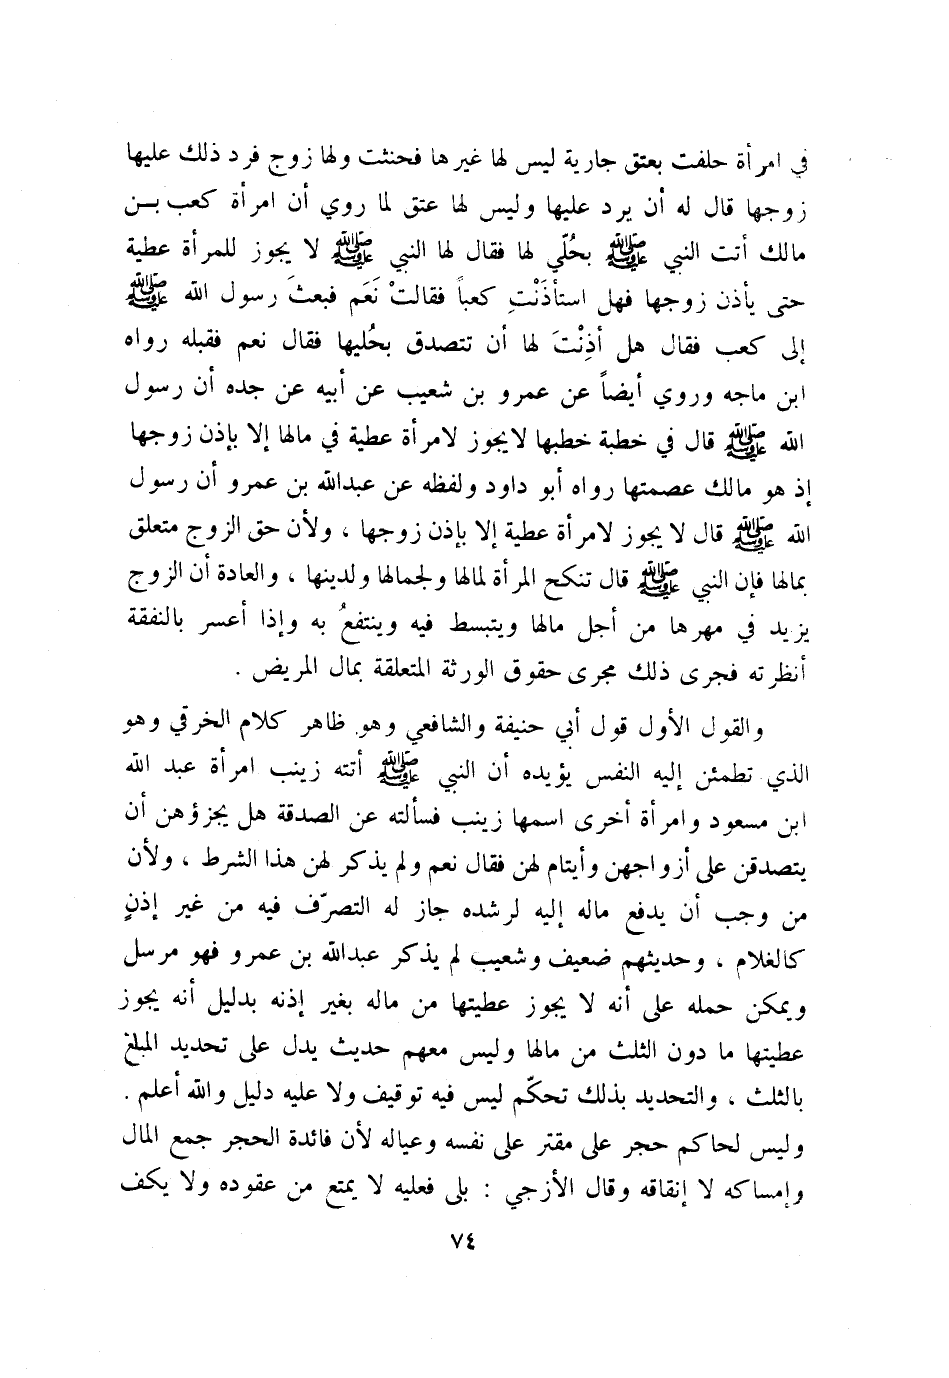 في امرأة حلفت بعتق جارية ليس لها غيرها فحنثت ولها زوج فرد ذلك عليها
زوجها قال له أن يرد عليها وليس لها عتق لما روي أن امرأة كعب بـن
مالك أتت النبي ﷺ بحُلّي لها فقال لها النبي ﷺ لا يجوز للمرأة عطية
حتى يأذن زوجها فهل استأذَنْتِ كعباً فقالتْ نَعَم فبعثَ رسول الله ﷺ
إلى كعب فقال هل أذِنْتَ لها أن تتصدق بحُليها فقال نعم فقبله رواه
ابن ماجه وروي أيضاً عن عمرو بن شعيب عن أبيه عن جده أن رسول
الله ﷺ قال في خطبة خطبها لايجوز لامرأة عطية في مالها إلا بإذن زوجها
إذ هو مالك عصمتها رواه أبو داود ولفظه عن عبدالله بن عمرو أن رسول
الله ﷺ قال لا يجوز لامرأة عطية إلا بإذن زوجها ، ولأن حق الزوج متعلق
بمالها فإن النبي ﷺ قال تنكح المرأة لمالها ولجمالها ولدينها ، والعادة أن الزوج
يزيد في مهرها من أجل مالها ويتبسط فيه وينتفعُ به وإذا أعسر بالنفقة
أنظرته فجرى ذلك مجرى حقوق الورثة المتعلقة بمال المريض .
والقول الأول قول أبي حنيفة والشافعي وهو ظاهر كلام الخرقي وهو
الذي تطمئن إليه النفس يؤيده أن النبي ﷺ أتته زينب امرأة عبد الله
ابن مسعود وامرأة أخرى اسمها زينب فسألته عن الصدقة هل يجزؤهن أن
يتصدقن على أزواجهن وأيتام لهن فقال نعم ولم يذكر لهن هذا الشرط ، ولأن
من وجب أن يدفع ماله إليه لرشده جاز له التصرّف فيه من غير إذنٍ
كالغلام ، وحديثهم ضعيف وشعيب لم يذكر عبدالله بن عمرو فهو مرسل
ويمكن حمله على أنه لا يجوز عطيتها من ماله بغير إذنه بدليل أنه يجوز
عطيتها ما دون الثلث من مالها وليس معهم حديث يدل على تحديد المبلغ
بالثلث ، والتحديد بذلك تحكّم ليس فيه توقيف ولا عليه دليل والله أعلم .
وليس لحاكم حجر على مقتر على نفسه وعياله لأن فائدة الحجر جمع المال
وإمساكه لا إنقاقه وقال الأزجي : بلى فعليه لا يمتع من عقوده ولا يكف
٧٤